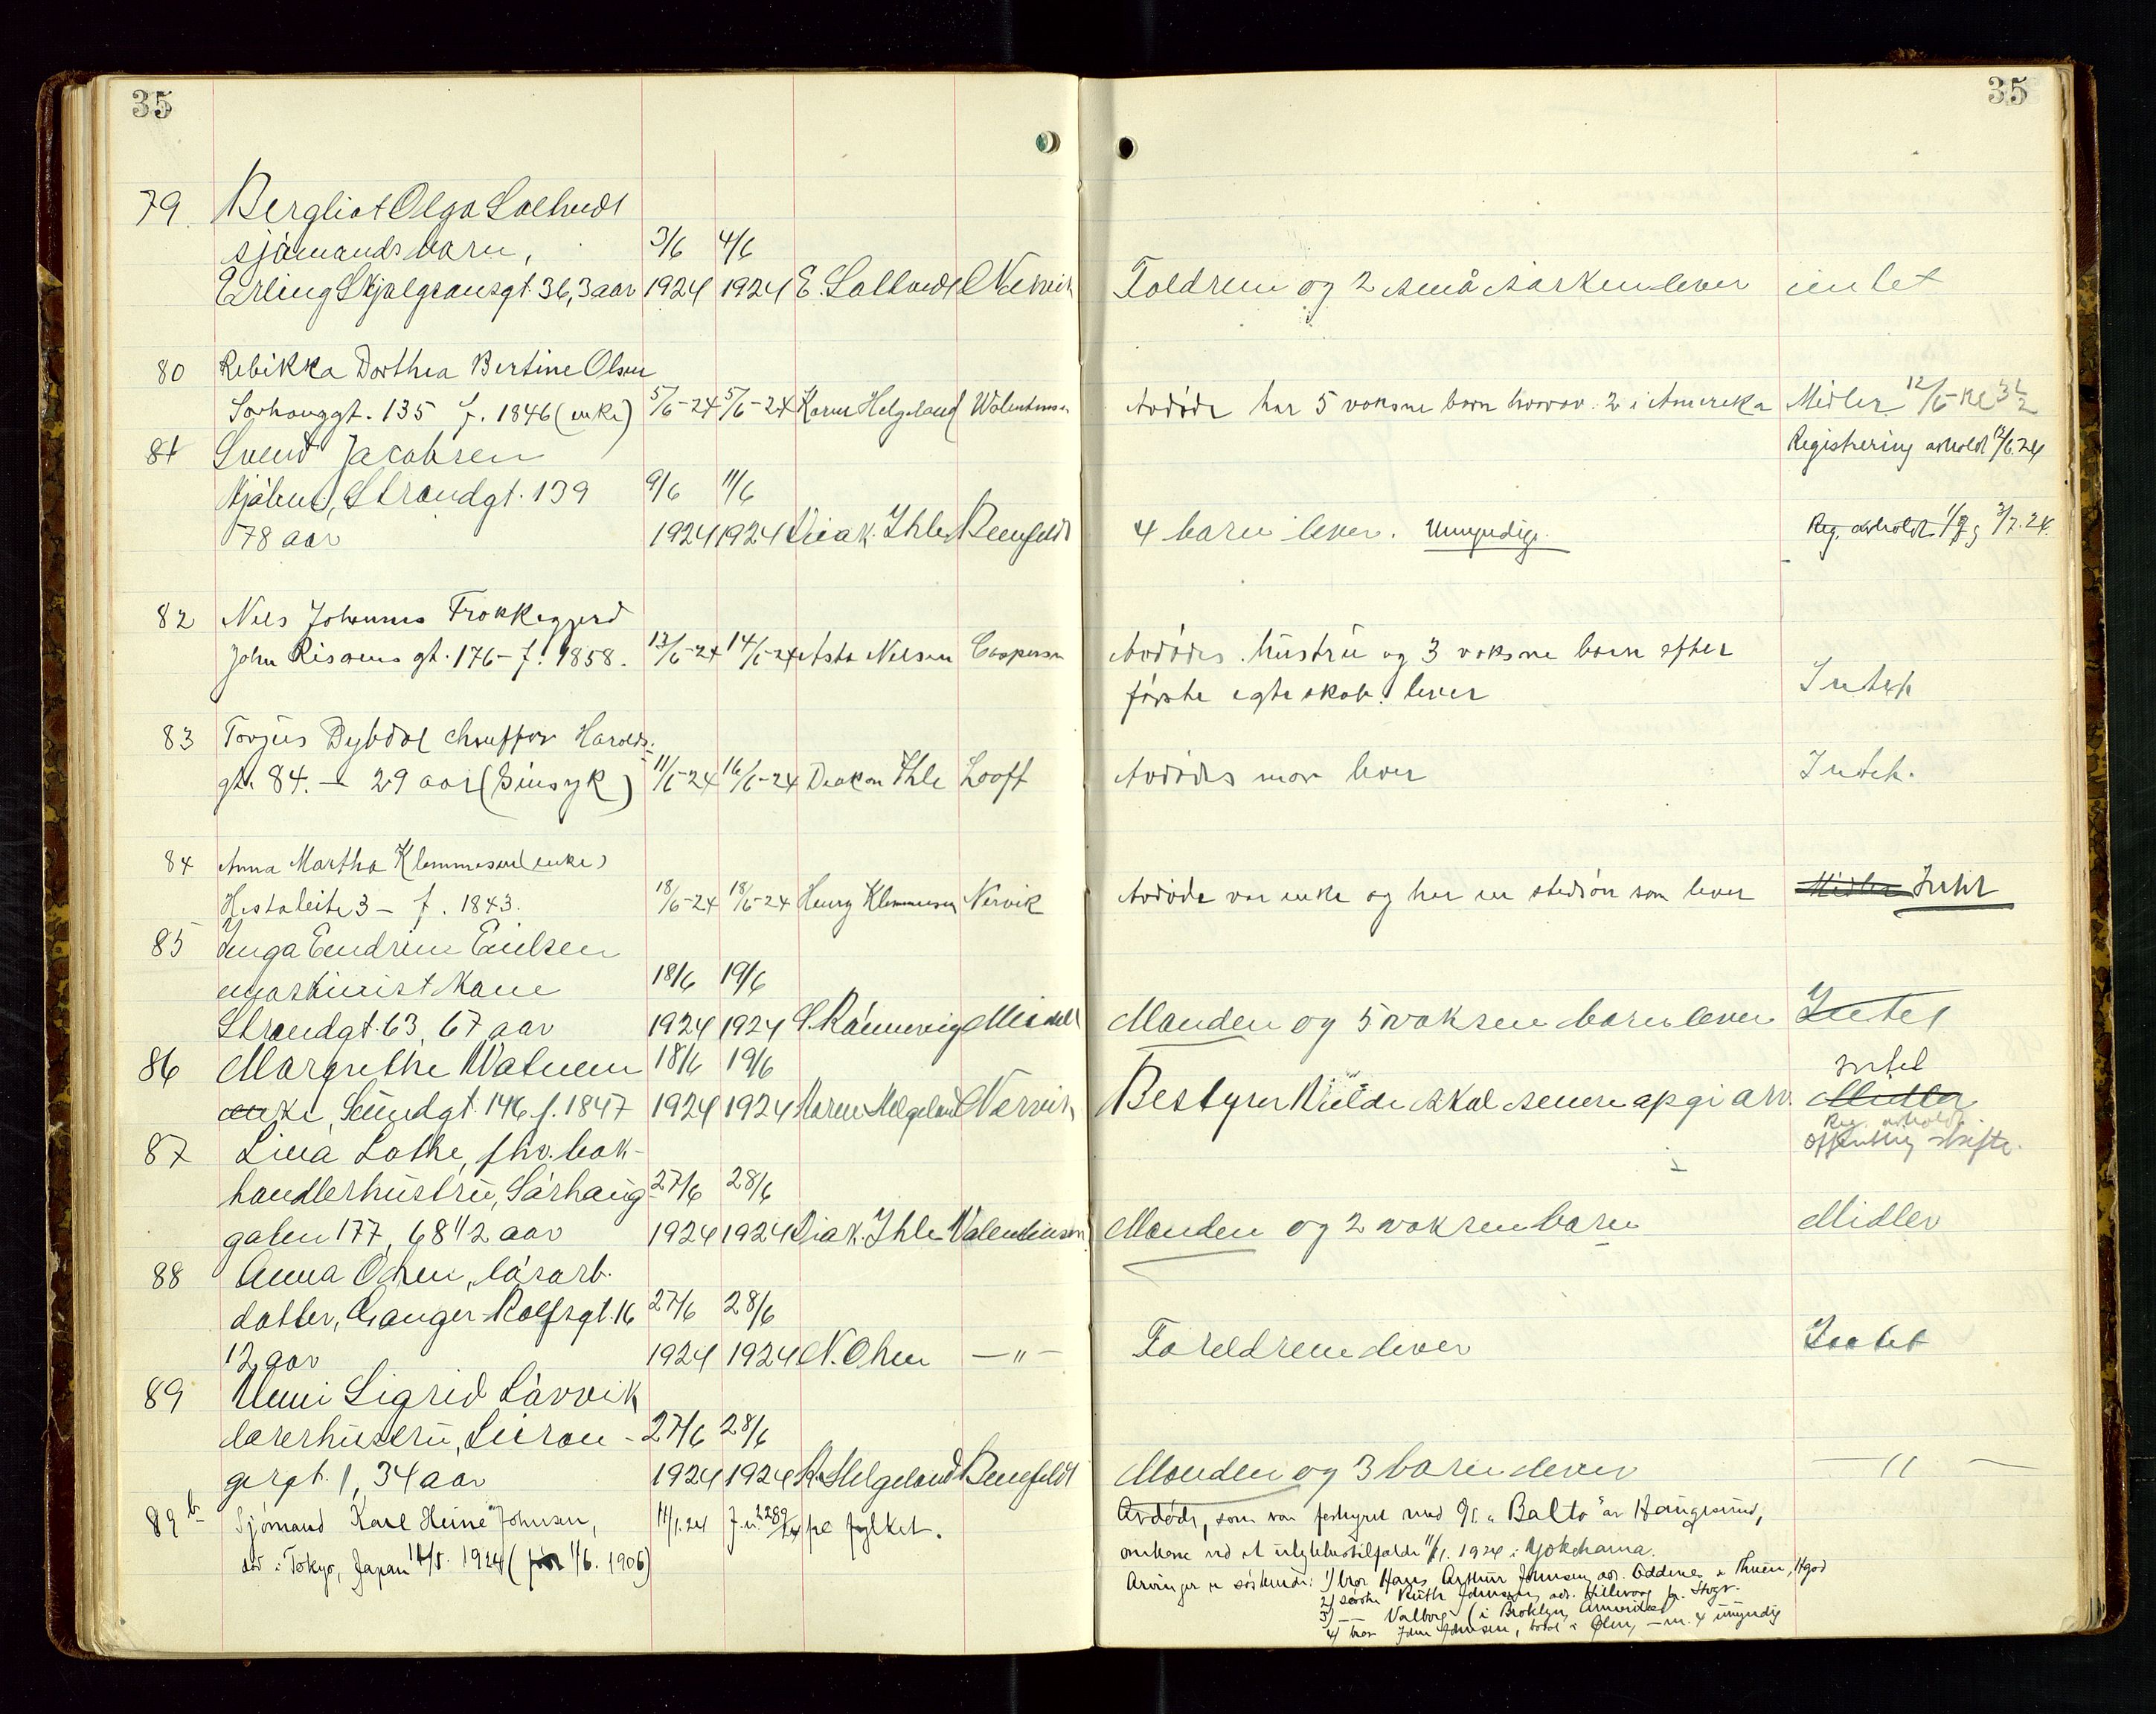 35
35
79. Bergliot Olga
sjømandsbarn, 3/6 4/6
Erling Skjalgsonsgt. 36, 3 aar 1924 1924 E. Nervik og 2 små søsken lever intet
80 Rebikka Dorthea Bertine Olsen
Sørhauggt. 135 f. 1846 (enke) 5/6-24 5/6-24 Karen Helgeland Walentinsen Avdøde har 5 voksne barn hvorav 2 i Amerika Midler 12/6 - kl 3 1/2
81 Svend Jacobsen Registrering avholdt 12/6.24
Strandgt. 139 9/6 11/6
78 aar 1924 1924 Diak. Ihle Benefeldt 4 barn lever. Umyndige. Reg. avholdt 1/7 og 3/7.24.
82 Nils Johannes
John Risøens gt. 176 - f. 1858. 13/6-24 14/6-24 Asta Nilsen Caspersen Avdødes hustru og 3 voksne barn efter
første egteskab lever Intet
83 Torjus Dybdal chauffør Haralds-
gt. 84. - 29 aar (Sinsyk) 11/6-24 16/6-24 Deakon Ihle Looft Avdødes mor lever Intet.
84 Anna Martha Klemmesen (enke)
3 - f. 1843. 18/6-24 18/6-24 Henry Klemmesen Nervik Avdøde var enke og har en stedsøn som lever Midler Intet
85 Inga Endrine
maskinist kone 18/6 19/6
Strandgt. 63, 67 aar 1924 1924 Manden og 5 voksne barn lever Intet
86 Margrethe Watnem 18/6 19/6 intet
enke, Sundgt. 146 f. 1847 1924 1924 Karen Helgeland Nervik Bestyrer skal senere opgi arv. Midler
Reg. avholdt
87 Lina Lothe, fhv. bok- Offentlig skifte.
handlerhustru, Sørhaug 27/6 28/6
gaten 177, 68 1/2 aar 1924 1924 Diak. Ihle Valentinsen Manden og 2 voksne barn Midler
88 Anna Ohen, løsarb.
datter, Ganger-Rolfsgt. 16 27/6 28/6
12 aar 1924 1924 N. Ohen —"— Foreldrene lever Intet
89 Unni Sigrid Løvvik
lærerhustru, 27/6 28/6
gergt. 1, 34 aar 1924 1924 K. Helgeland Benefeldt Manden og 3 barn lever —"—
89 b Sjømand Karl Heine Johnsen, 11/1.24 J.n. 2289/24 fra fylket. Avdøde, som var forhyret med D/S "Balto" av Haugesund,
død i Tokyo, Japan 1924 (før 1/6. 1906) omkom ved et ulykkestilfælde 11/1. 1924 i Yokohama.
Arvinger er søskende: 1) bror Hans Arthur Johnsen, adr. Thuen, Hgsd
2) søster Ruth Johnsen, adr. Hillevaag pr. Stvgr.
3) — Valborg (i Broklyn, Amerika)
4) bror John Johnsen, bosat i Ølen, umyndig